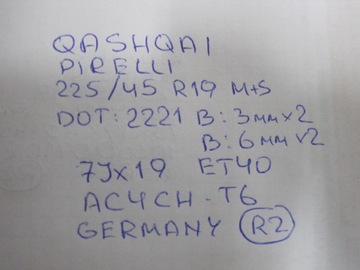 QASHQAI
PIRELLI
225/45 R19 M+S
DOT: 2221 B: 3мм x2
B: 6мм x2
7Jx19 ET40
AC4CH - T6
GERMANY R2